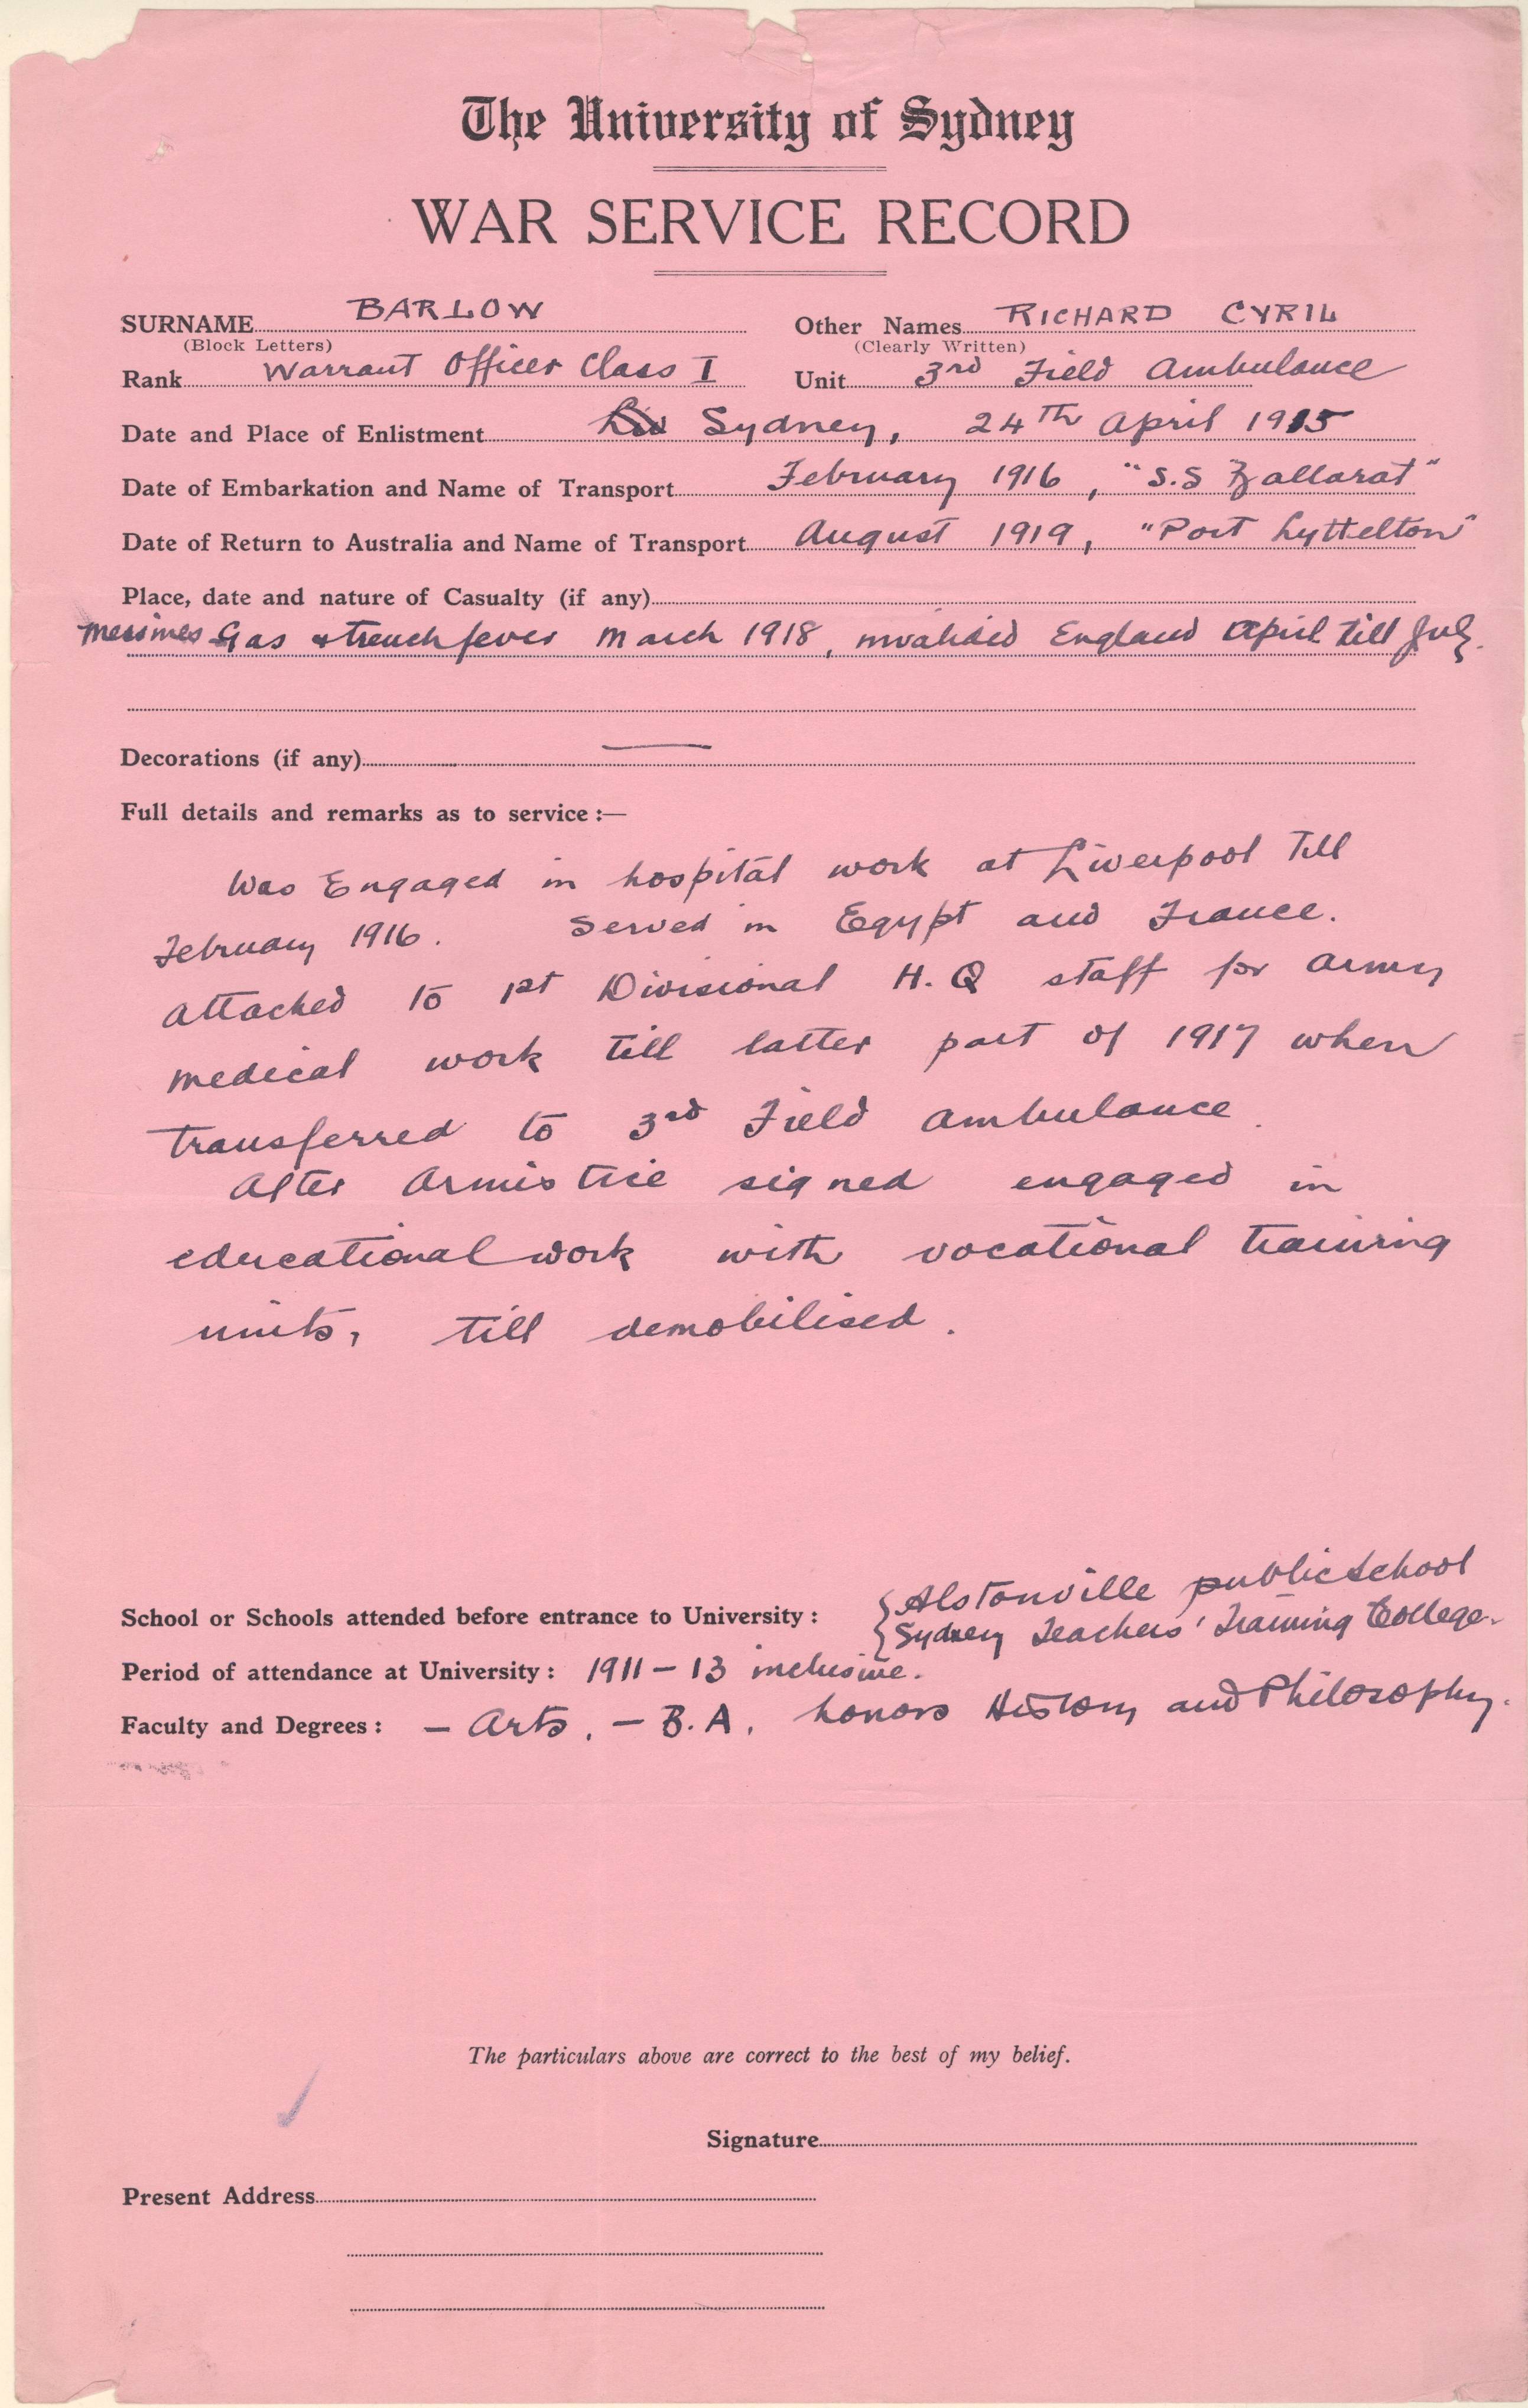 The University of Sydney
WAR SERVICE RECORD
SURNAME BARLOW Other Names RICHARD CYRIL
(Block Letters) (Clearly Written)
Rank Warrant Officer Class I Unit 3rd Field Ambulance
Date and Place of Enlistment Sydney, 24th April 1915
Date of Embarkation and Name of Transport February 1916, "S.S Ballarat"
Date of Return to Australia and Name of Transport August 1919, "Port Lyttelton"
Place, date and nature of Casualty (if any)
Messines Gas & trench fever March 1918, invalided England April till July.
Decorations (if any) —
Full details and remarks as to service :—
Was Engaged in hospital work at Liverpool till
February 1916. Served in Egypt and France.
Attached to 1st Divisional H.Q staff for army
medical work till latter part of 1917 when
transferred to 3rd Field Ambulance.
After Armistice signed engaged in
educational work with vocational training
units, till demobilised.
School or Schools attended before entrance to University : { Alstonville public school
{ Sydney Teachers' Training College.
Period of attendance at University : 1911 – 13 inclusive.
Faculty and Degrees : – Arts. – B.A. honors History and Philosophy.
The particulars above are correct to the best of my belief.
Signature
Present Address